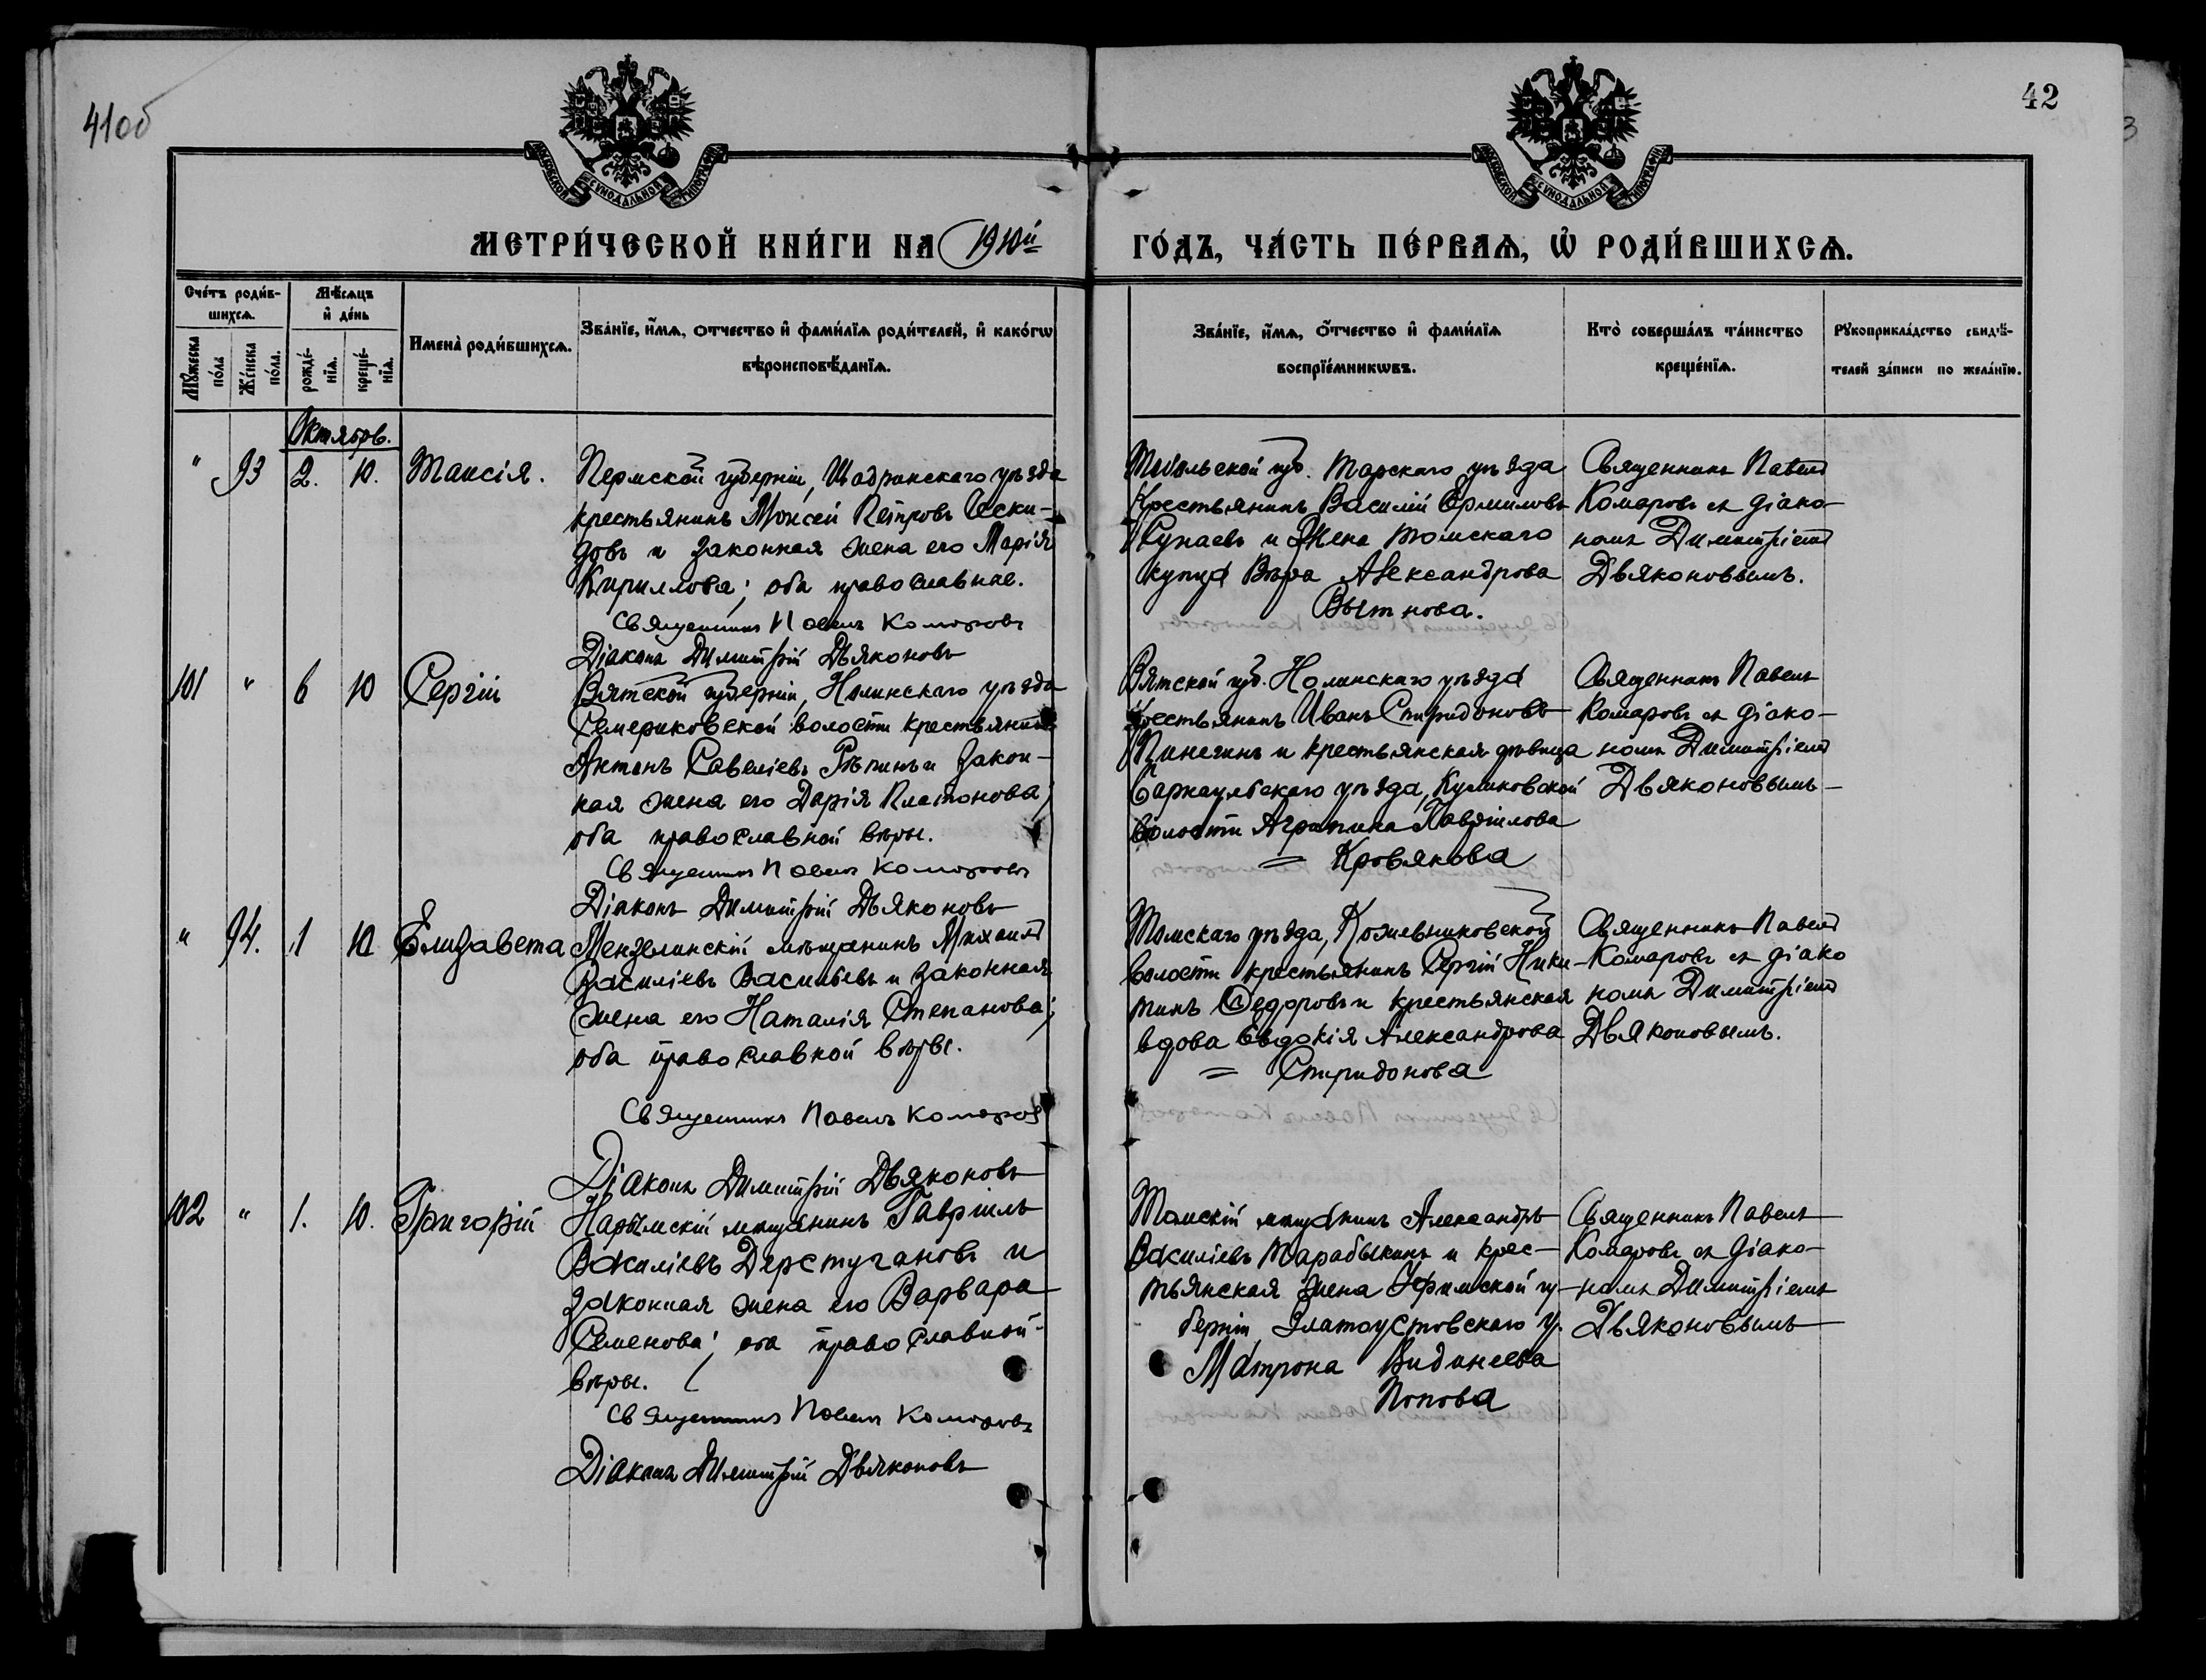 41об
42
МОСКОВСКОЙ СѴНОДАЛЬНОЙ ТИПОГРАФІИ
МОСКОВСКОЙ СѴНОДАЛЬНОЙ ТИПОГРАФІИ
МЕТРИ́ЧЕСКОЙ КНИ́ГИ НА 1910й
ГО́ДЪ, ЧА́СТЬ ПЕ́РВАѦ, Ѡ҆ РОДИ́ВШИХСѦ.
Сче́тъ роди́в-
шихсѧ.
Мꙋ́жеска по́ла
Же́нска по́ла.
Мѣ́сѧцъ
и҆ де́нь
рожде́-
нїѧ.
креще́-
нїѧ.
Имена̀ роди́вшихсѧ.
Зва́нїе, и҆́мѧ, о́тчество и҆ фами́лїѧ роди́телей, и҆ како́гѡ
вѣроисповѣ́данїѧ.
Зва́нїе, и҆́мѧ, о҆́тчество и҆ фами́лїѧ
воспрїе́мникѡвъ.
Кто̀ соверша́лъ та́инство
креще́нїѧ.
Рꙋкоприкла́дство свидѣ́-
телей за́писи по жела́нїю.
Октябрь.
" 93 2. 10. Таисія.
Пермской губерніи, Шадринскаго уѣзда
крестьянинъ Моисей Петровъ
и законная жена его Марія
Кириллова; оба православные.
Священникъ Павелъ Комаровъ
Діаконъ Димитрій Дьяконовъ
Тобольской губ. Тарскаго уѣзда
Крестьянинъ Василій Ермиловъ
и Жена томскаго
купца Вѣра Александрова
Вытнова.
Священникъ Павелъ
Комаровъ съ діако-
номъ Димитріемъ
Дьяконовымъ.
101 " 6 10 Сергій
Вятской губерніи, Нолинскаго уѣзда
Семериковской волости крестьянинъ
Антонъ Савеліевъ Рѣпинъ и закон-
ная жена его Дарія Платонова;
оба православной вѣры.
Священникъ Павелъ Комаровъ
Діаконъ Димитрій Дьяконовъ
Вятской губ. Нолинскаго уѣзда
Крестьянинъ Иванъ Спиридоновъ
Пинегинъ и крестьянская дѣвица
Барнаульскаго уѣзда, Куликовской
волости Агрипина Гавріилова
= Кровякова
Священникъ Павелъ
Комаровъ съ діако-
номъ Димитріемъ
Дьяконовымъ
" 94. 1 10 Елизавета
Мензелинскій мѣщанинъ Михаилъ
Василіевъ Васильевъ и законная
жена его Наталія Степанова;
оба православной вѣры.
Священникъ Павелъ Комаровъ
Діаконъ Димитрій Дьяконовъ
Томскаго уѣзда, Кожевниковской
волости крестьянинъ Сергій Ники-
тинъ Ѳедоровъ и крестьянская
вдова Евдокія Александрова
= Спиридонова
Священникъ Павелъ
Комаровъ съ діако
номъ Димитріемъ
Дьяконовымъ.
102 " 1. 10. Григорій
Нарымскій мещанинъ Гавріилъ
Василіевъ и
законная жена его Варвара
Семенова; оба православной
вѣры.
Священникъ Павелъ Комаровъ
Діаконъ Димитрій Дьяконовъ
Томскій мещанинъ Александръ
Василіевъ Тарабыкинъ и крес-
тьянская жена Уфимской гу-
берніи, Златоустовскаго у.
Матрона
Попова
Священникъ Павелъ
Комаровъ съ діако-
номъ Димитріемъ
Дьяконовымъ